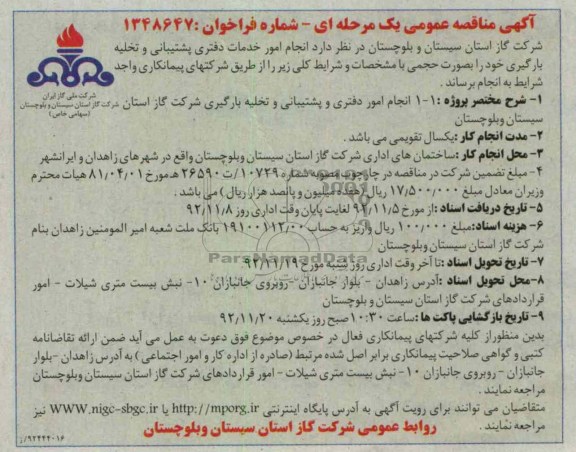 آگهی مناقصه عمومی یک مرحله ای - شماره فراخوان :۱۳۴۸۶۴۷
شرکت گاز استان سیستان و بلوچستان در نظر دارد انجام امور خدمات دفتری پشتیبانی و تخلیه
بارگیری خود را بصورت حجمی با مشخصات و شرایط کلی زیر را از طریق شرکتهای پیمانکاری واجد
شرایط به انجام برساند .
شرکت ملی گاز ایران
شرکت گاز استان سیستان و بلوچستان
(سهامی خاص)
۱- شرح مختصر پروژه :۱-۱ انجام امور دفتری و پشتیبانی و تخلیه بارگیری شرکت گاز استان
سیستان وبلوچستان
۲- مدت انجام کار :یکسال تقویمی می باشد .
۳- محل انجام کار :ساختمان های اداری شرکت گاز استان سیستان وبلوچستان واقع در شهرهای زاهدان و ایرانشهر
۴- مبلغ تضمین شرکت در مناقصه در چارچوب مصوبه شماره ۱۰۷۲۹/ت ۲۶۵۹۰ هـ مورخ ۸۱/۰۴/۰۱ هیات محترم
وزیران معادل مبلغ ۱۷/۵۰۰/۰۰۰ ریال (هفده میلیون و پانصد هزار ریال) می باشد .
۵- تاریخ دریافت اسناد :از مورخ ۹۲/۱۱/۵ لغایت پایان وقت اداری روز ۹۲/۱۱/۸
۶- هزینه اسناد:مبلغ ۱۰۰/۰۰۰ ریال واریز به حساب ۱۹۱۰۰۱۱۲/۰۰ بانک ملت شعبه امیر المومنین زاهدان بنام
شرکت گاز استان سیستان وبلوچستان
ParsNamadData
۷- تاریخ تحویل اسناد :تا آخر وقت اداری روز شنبه مورخ ۹۲/۱۱/۱۹
۸-محل تحویل اسناد :آدرس زاهدان - بلوار جانبازان -روبروی جانبازان ۱۰- نبش بیست متری شیلات - امور
قراردادهای شرکت گاز استان سیستان و بلوچستان
۹- تاریخ بازگشایی پاکت ها :ساعت ۱۰:۳۰ صبح روز یکشنبه ۹۲/۱۱/۲۰
بدین منظور از کلیه شرکتهای پیمانکاری فعال در خصوص موضوع فوق دعوت به عمل می آید ضمن ارائه تقاضانامه
کتبی و گواهی صلاحیت پیمانکاری برابر اصل شده مرتبط (صادره از اداره کار و امور اجتماعی) به آدرس زاهدان -بلوار
جانبازان - روبروی جانبازان ۱۰- نبش بیست متری شیلات - امور قراردادهای شرکت گاز استان سیستان وبلوچستان
مراجعه نمایند .
متقاضیان می توانند برای رویت آگهی به آدرس پایگاه اینترنتی http://mporg.ir یا WWW.nigc-sbgc.ir نیز
مراجعه نمایند .
روابط عمومی شرکت گاز استان سیستان وبلوچستان
۹۲۲۴۲۰۱۶/ز